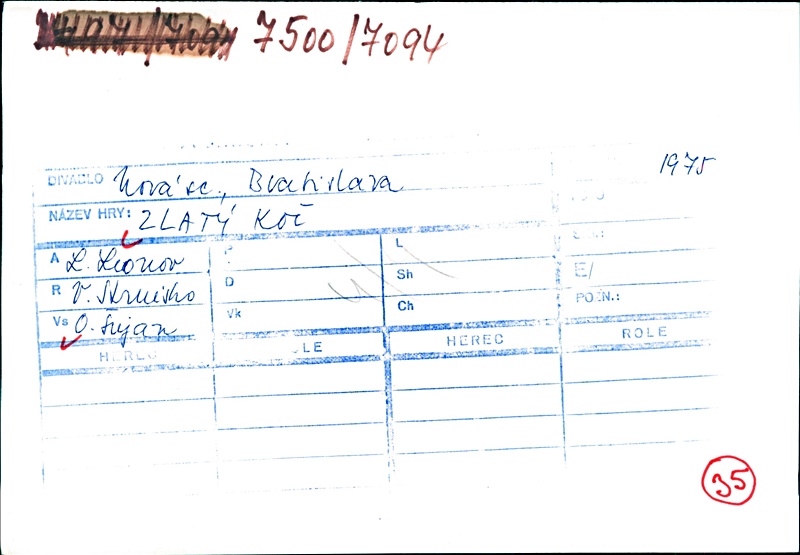 7500/7094
1975
DIVADLO Nová sc., Bratislava
NÁZEV HRY: ZLATÝ KOČ
A L. Leonov L
R V. Strnisko D Sh E/
Vs O. Šujan Vk Ch POZN.:
HEREC ROLE HEREC ROLE
35